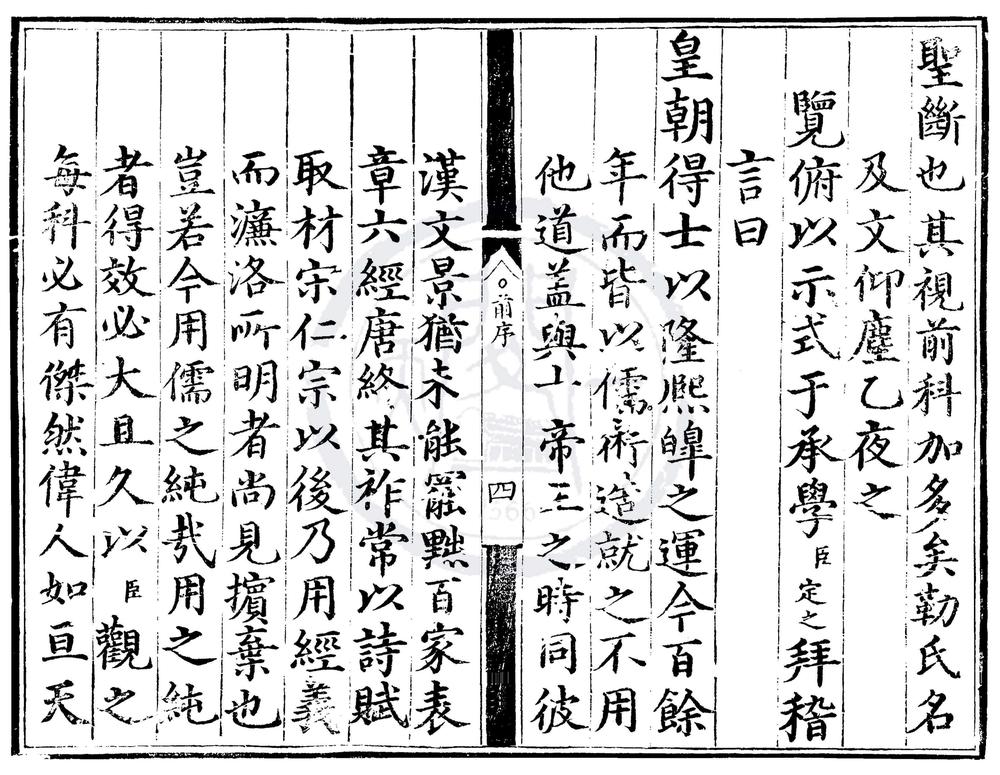 聖斷也其視前科加多矣勒氏名
及文仰塵乙夜之
覽俯以示式于承學臣定之拜稽
言曰
皇朝得士以隆熙皥之運今百餘
年而皆以儒術造就之不用
他道蓋與二帝三王之時同彼
前序
四
漢文景猶未能罷黜百家表
章六經唐終其祚常以詩賦
取材宋仁宗以後乃用經義
而濂洛所明者尚見擯棄也
豈若今用儒之純㢤用之純
者得效必大且久以臣觀之
每科必有傑然偉人如亘天